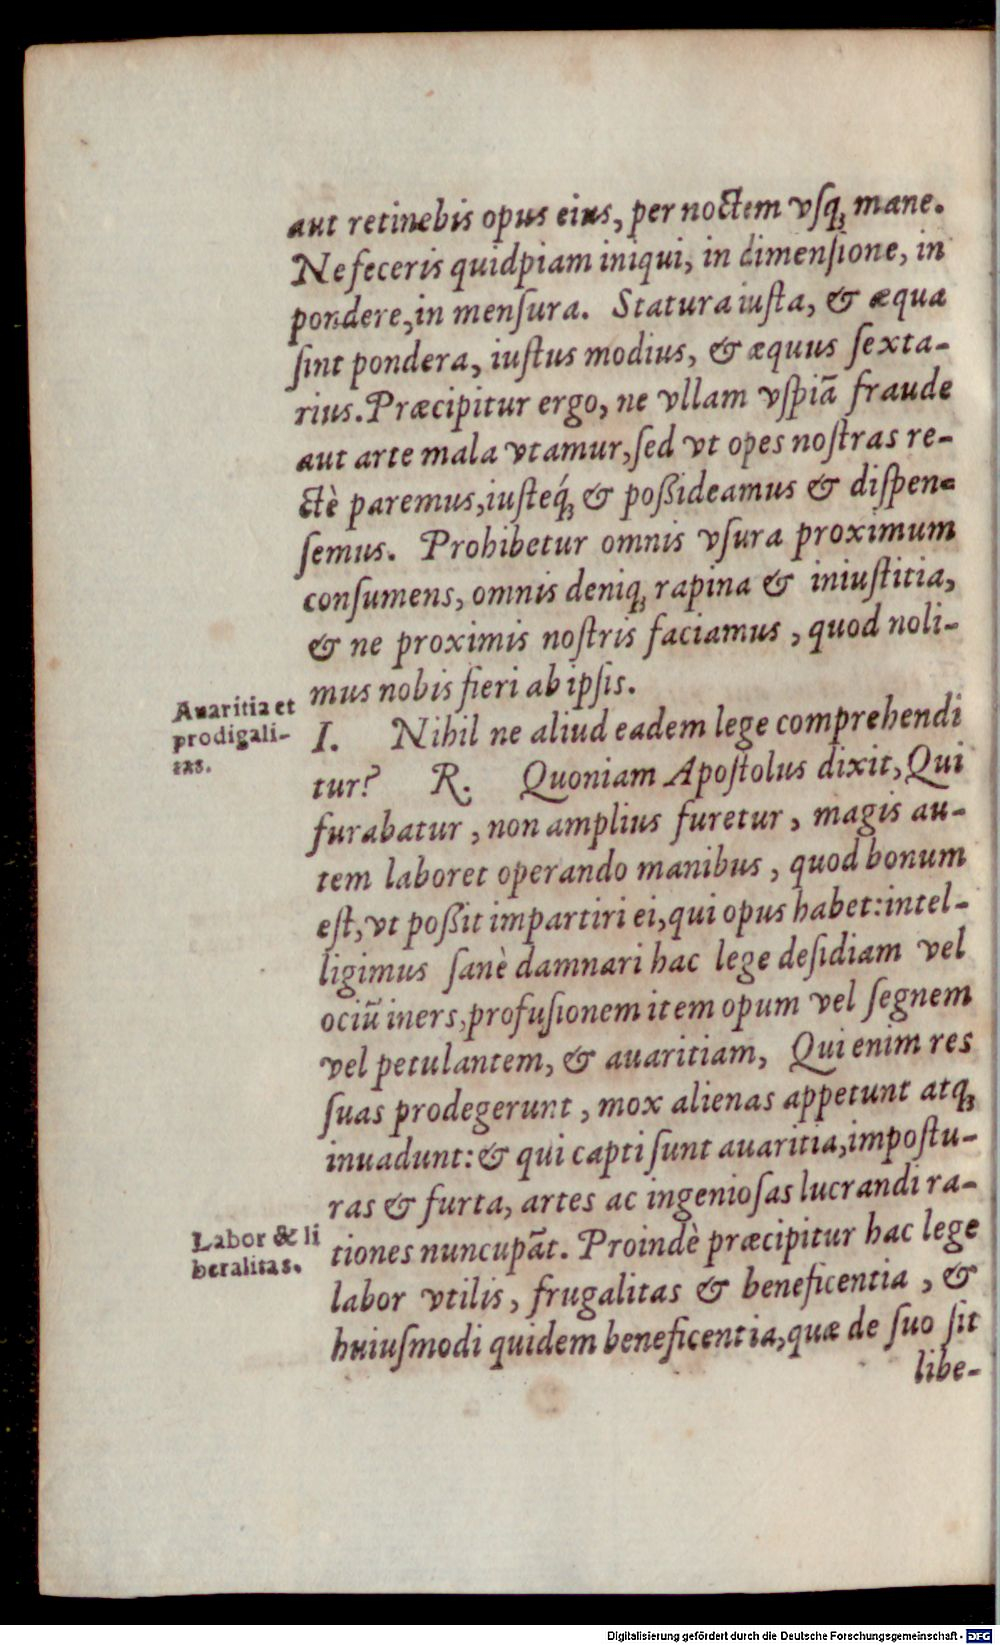 aut retinebis opus eius, per noctem vſqꝫ mane.
Ne feceris quidpiam iniqui, in dimenſione, in
pondere, in menſura. Statura iuſta, & æqua
ſint pondera, iuſtus modius, & æquus ſexta-
rius. Præcipitur ergo, ne vllam vſpiã fraude
aut arte mala vtamur, ſed vt opes noſtras re-
ctè paremus, iuſteq́ꝫ & poßideamus & diſpen-
ſemus. Prohibetur omnis vſura proximum
conſumens, omnis deniqꝫ rapina & iniuſtitia,
& ne proximis noſtris faciamus, quod noli-
mus nobis fieri ab ipſis.
Avaritia et
prodigali-
tas.
I. Nihil ne aliud eadem lege comprehendi
tur? R. Quoniam Apoſtolus dixit, Qui
furabatur, non amplius furetur, magis au-
tem laboret operando manibus, quod bonum
eſt, vt poßit impartiri ei, qui opus habet: intel-
ligimus ſanè damnari hac lege deſidiam vel
ociũ iners, profuſionem item opum vel ſegnem
vel petulantem, & auaritiam, Qui enim res
ſuas prodegerunt, mox alienas appetunt atqꝫ
inuadunt: & qui capti ſunt auaritia, impoſtu-
ras & furta, artes ac ingenioſas lucrandi ra-
Labor & li
beralitas.
tiones nuncupãt. Proindè præcipitur hac lege
labor vtilis, frugalitas & beneficentia, &
huiuſmodi quidem beneficentia, quæ de ſuo ſit
libe-
Digitalisierung gefördert durch die Deutsche Forschungsgemeinschaft - DFG